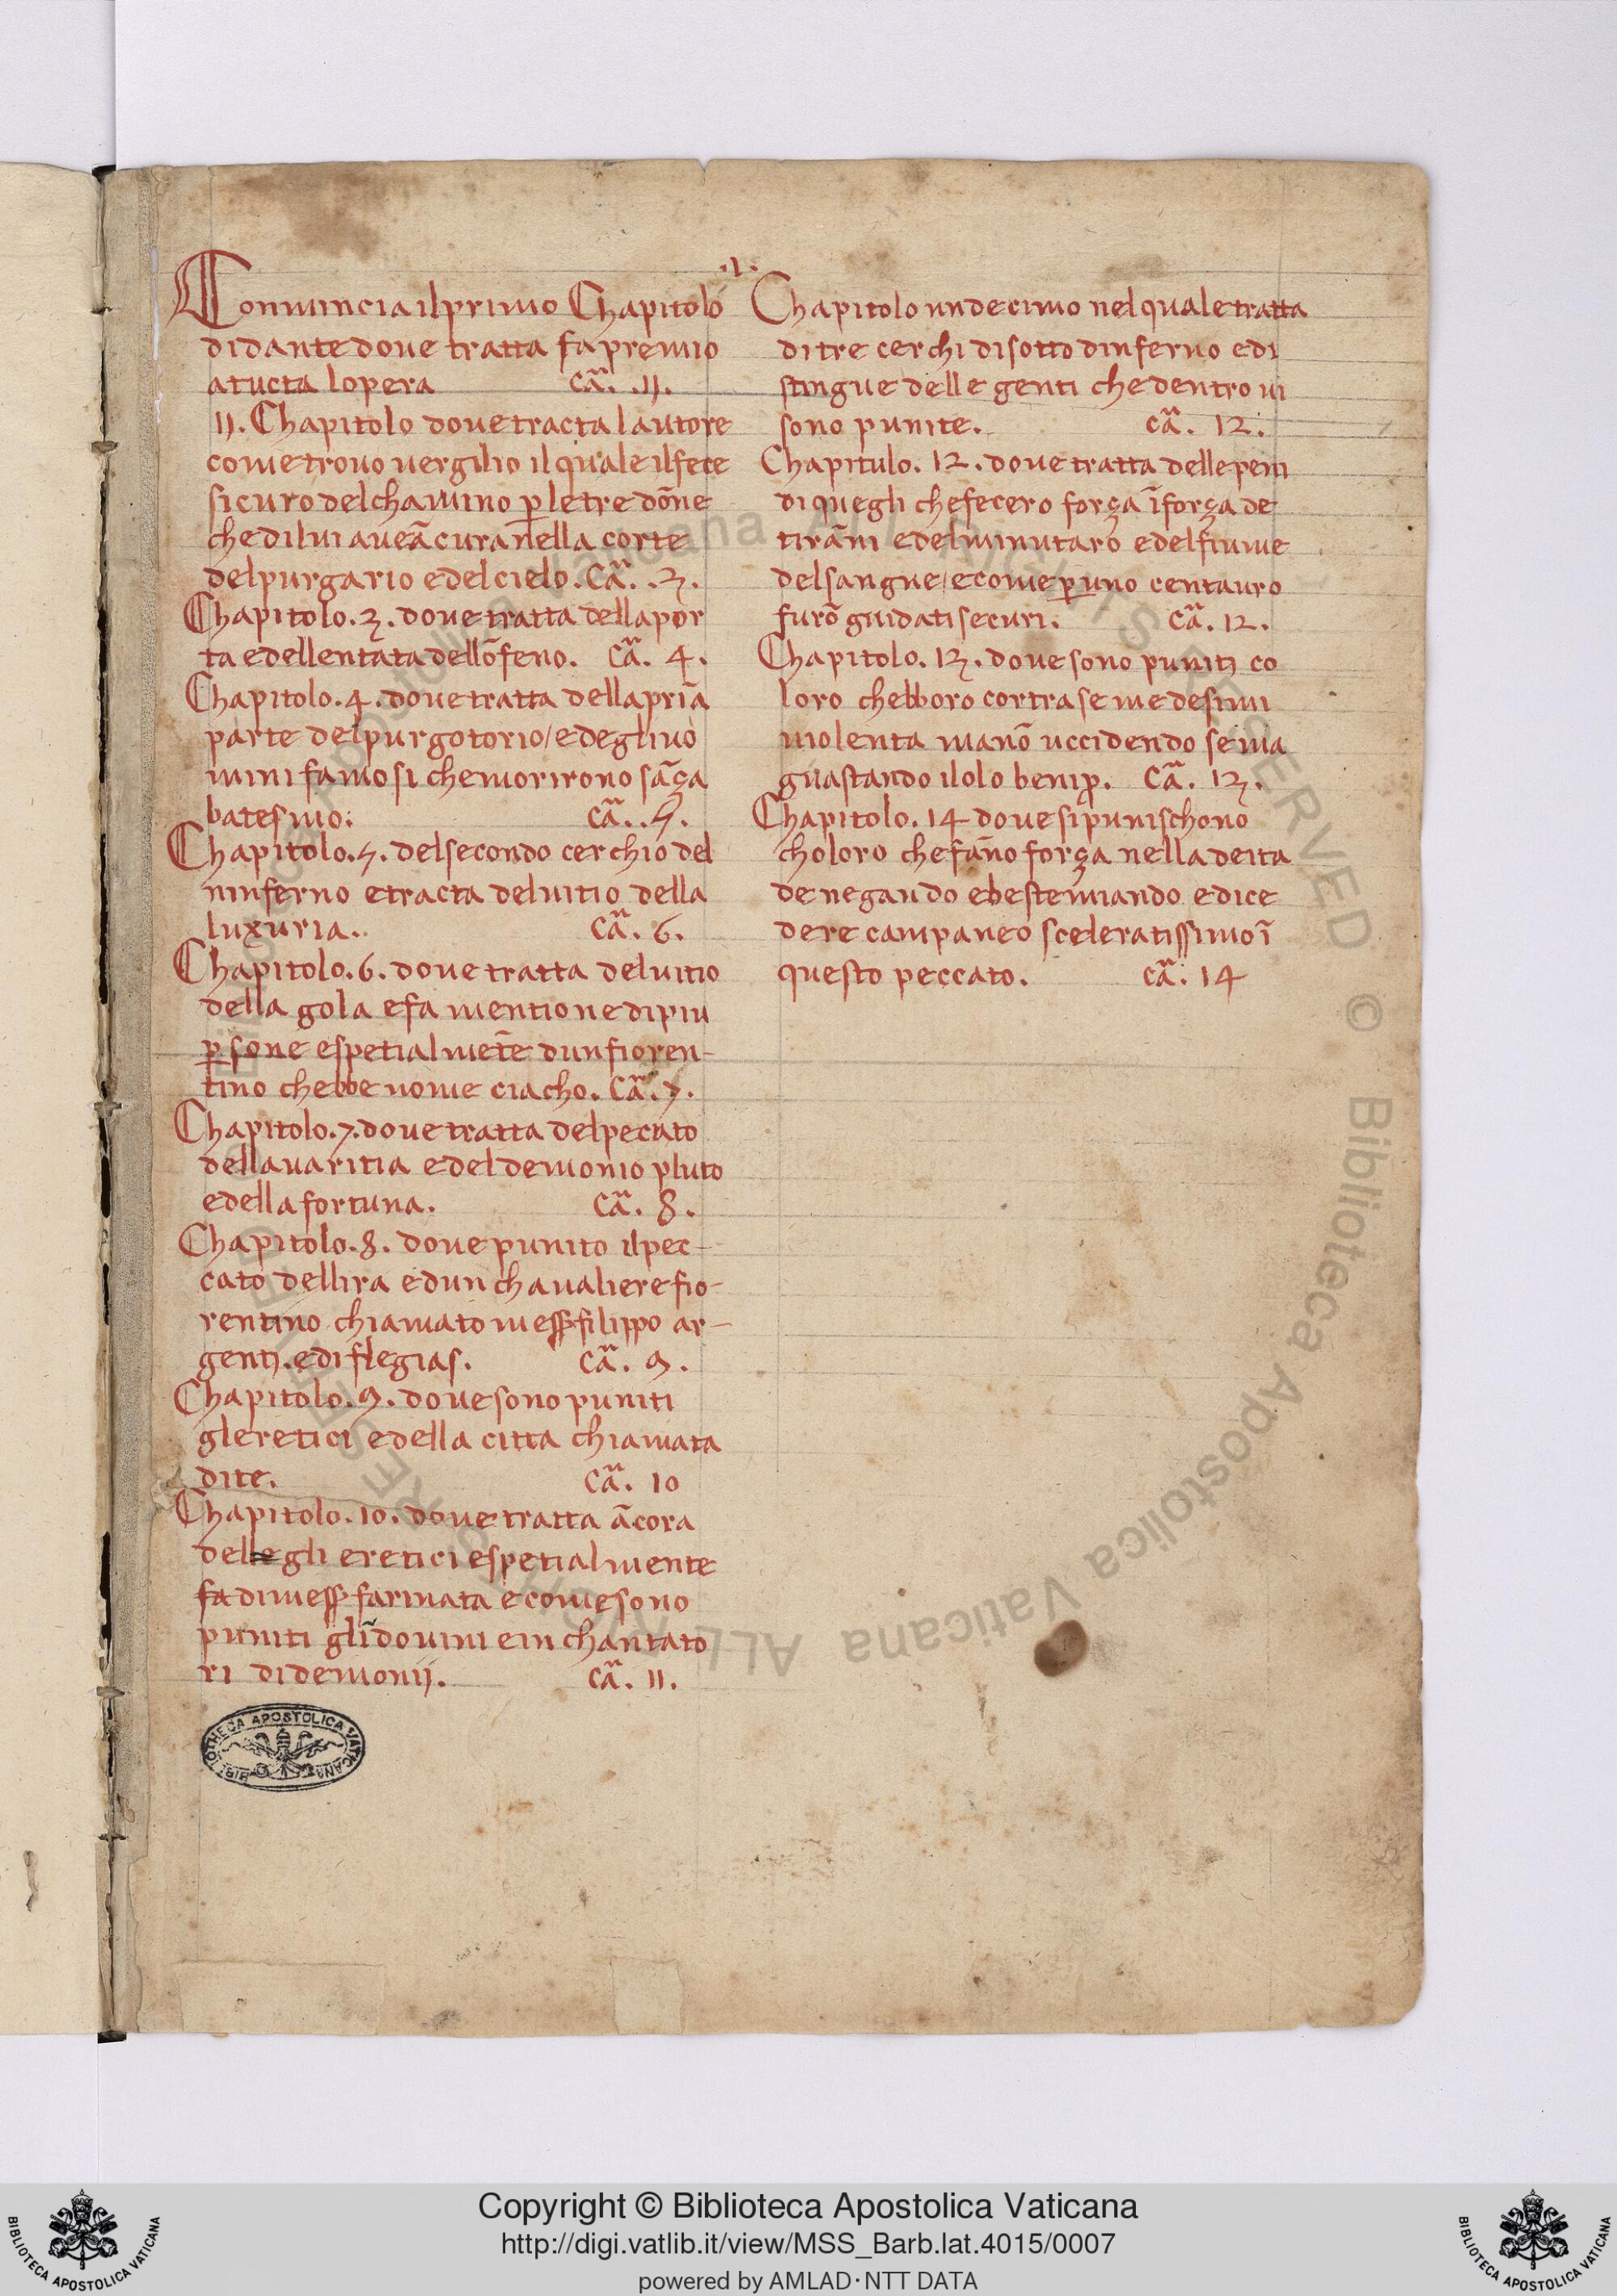 .1.
Comincia il primo Chapitolo
di dante dove tratta fa premio
a tucta lopera cā. .II.
II. Chapitolo dove tracta lautore
come trovo vergilio il quale il fece
sicuro del chamino p̱ le tre dōne
che di lui aveā cura nella corte
del purgario e del cielo. cā. .3.
Chapitolo .3. dove tratta della por
ta e dellentata dellōferno. cā. 4.
Chapitolo .4. dove tratta della priā
parte del purgotorio / e degli uo
mini famosi che morirono sāza
batesmo: cā. .5.
Chapitolo .5. del secondo cerchio del
ninferno e tracta del vitio della
luxuria. cā. 6.
Chapitolo .6. dove tratta del vitio
della gola e fa mentione di piu
p̱sone e spetialmēte dun fioren-
tino chebbe nome ciacho. cā. 7.
Chapitolo .7. dove tratta del pecato
dellavaritia e del demonio pluto
e della fortuna. cā. 8.
Chapitolo .8. dove punito il pec-
cato dellira e dun chavaliere fio-
rentino chiamato mess filippo ar-
genti. e di flegias. cā. 9.
Chapitolo .9. dove sono puniti
gleretici e della citta chiamata
dite. cā. 10
Chapitolo .10. dove tratta ācora
delle gli eretici e spetialmente
fa di mess farinata e come sono
puniti glīdovini e inchantato
ri di demonij. cā. 11.
Chapitolo undecimo nel quale tratta
di tre cerchi di sotto dinferno e di
stingue delle genti che dentro vi
sono punite. cā. 12.
Chapitulo .12. dove tratta delle peni
di quegli che fecero forza ī forza de
tirāni e del minutaro e del fiume
del sangue / e come p̱ uno centauro
furō guidati securi. cā. 12.
Chapitolo .13. dove sono puniti co
loro chebboro cortra se medesimi
violenta manō uccidendo se ma
guastando ilolo beni p̱. cā. 13.
Chapitolo .14 dove si punischono
choloro che fāno forza nella deita
de negando e bestemiando e dice
de re campaneo sceleratissimo ī
questo peccato. cā. 14
BIBLIOTHECA APOSTOLICA VATICANA
Biblioteca Apostolica Vaticana ALL RIGHTS RESERVED © Biblioteca Apostolica Vaticana ALL RIGHTS RESERVED ©
Copyright © Biblioteca Apostolica Vaticana
http://digi.vatlib.it/view/MSS_Barb.lat.4015/0007
powered by AMLAD·NTT DATA
BIBLIOTECA APOSTOLICA VATICANA
BIBLIOTECA APOSTOLICA VATICANA